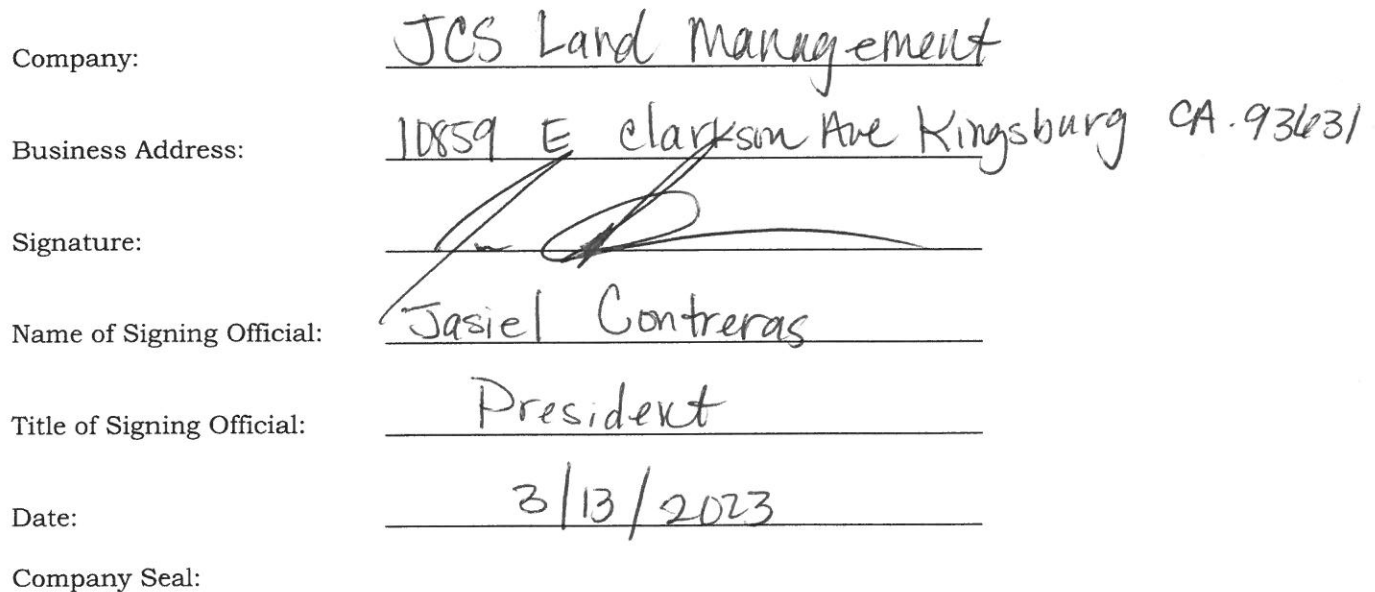 Company: JCS Land Management
Business Address: 10859 E Clarkson Ave Kingsburg CA. 93631
Signature:
Name of Signing Official: Jasiel Contreras
Title of Signing Official: President
Date: 3/13/2023
Company Seal: